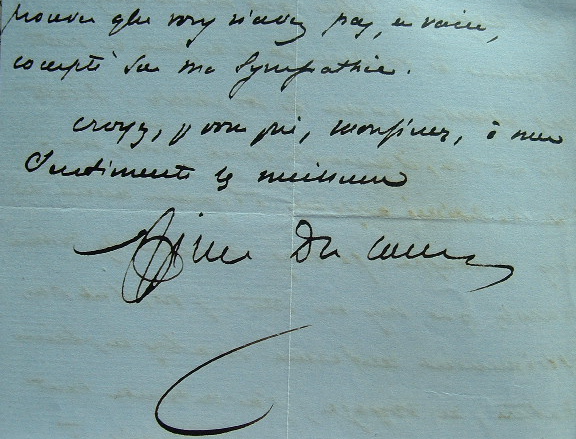 prouver que vous n'avez pas, en vain,
compté sur ma sympathie.
croyez, je vous prie, monsieur, à mes
Sentiments les meilleurs
Maxime Du Camp